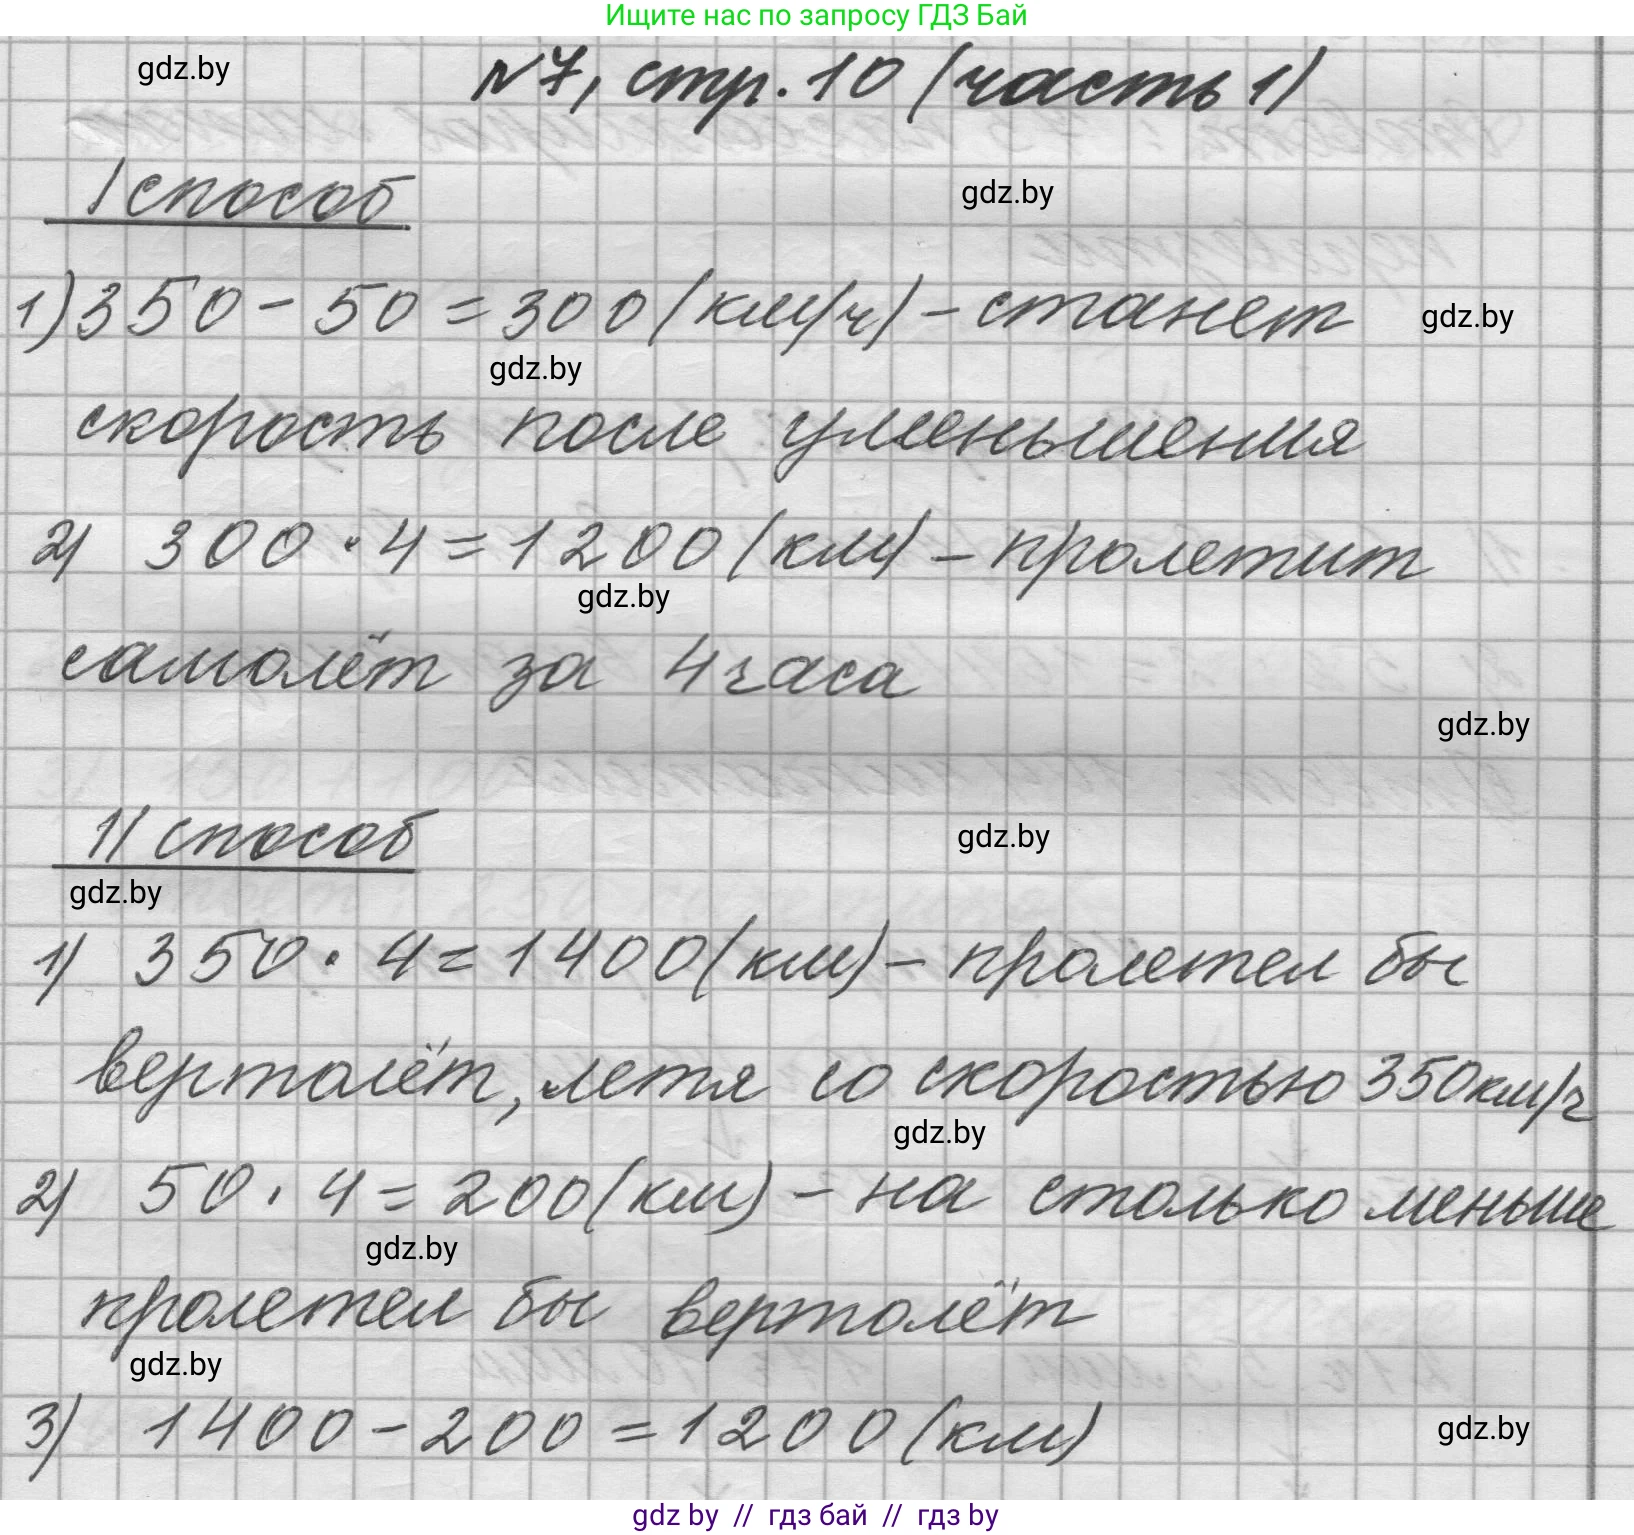 Ищите нас по запросу ГДЗ Бай
gdz.by
№7, стр. 10 (часть 1)
I способ
gdz.by
1) 350 - 50 = 300 (км/ч) - станет
gdz.by
gdz.by
скорость после уменьшения
2) 300 · 4 = 1200 (км) - пролетит
gdz.by
самолёт за 4 часа
gdz.by
II способ
gdz.by
gdz.by
1) 350 · 4 = 1400 (км) - пролетел бы
вертолёт, летя со скоростью 350 км/ч
gdz.by
2) 50 · 4 = 200 (км) - на столько меньше
gdz.by
пролетел бы вертолёт
gdz.by
3) 1400 - 200 = 1200 (км)
gdz.by
gdz by // гдз бай // гдз by